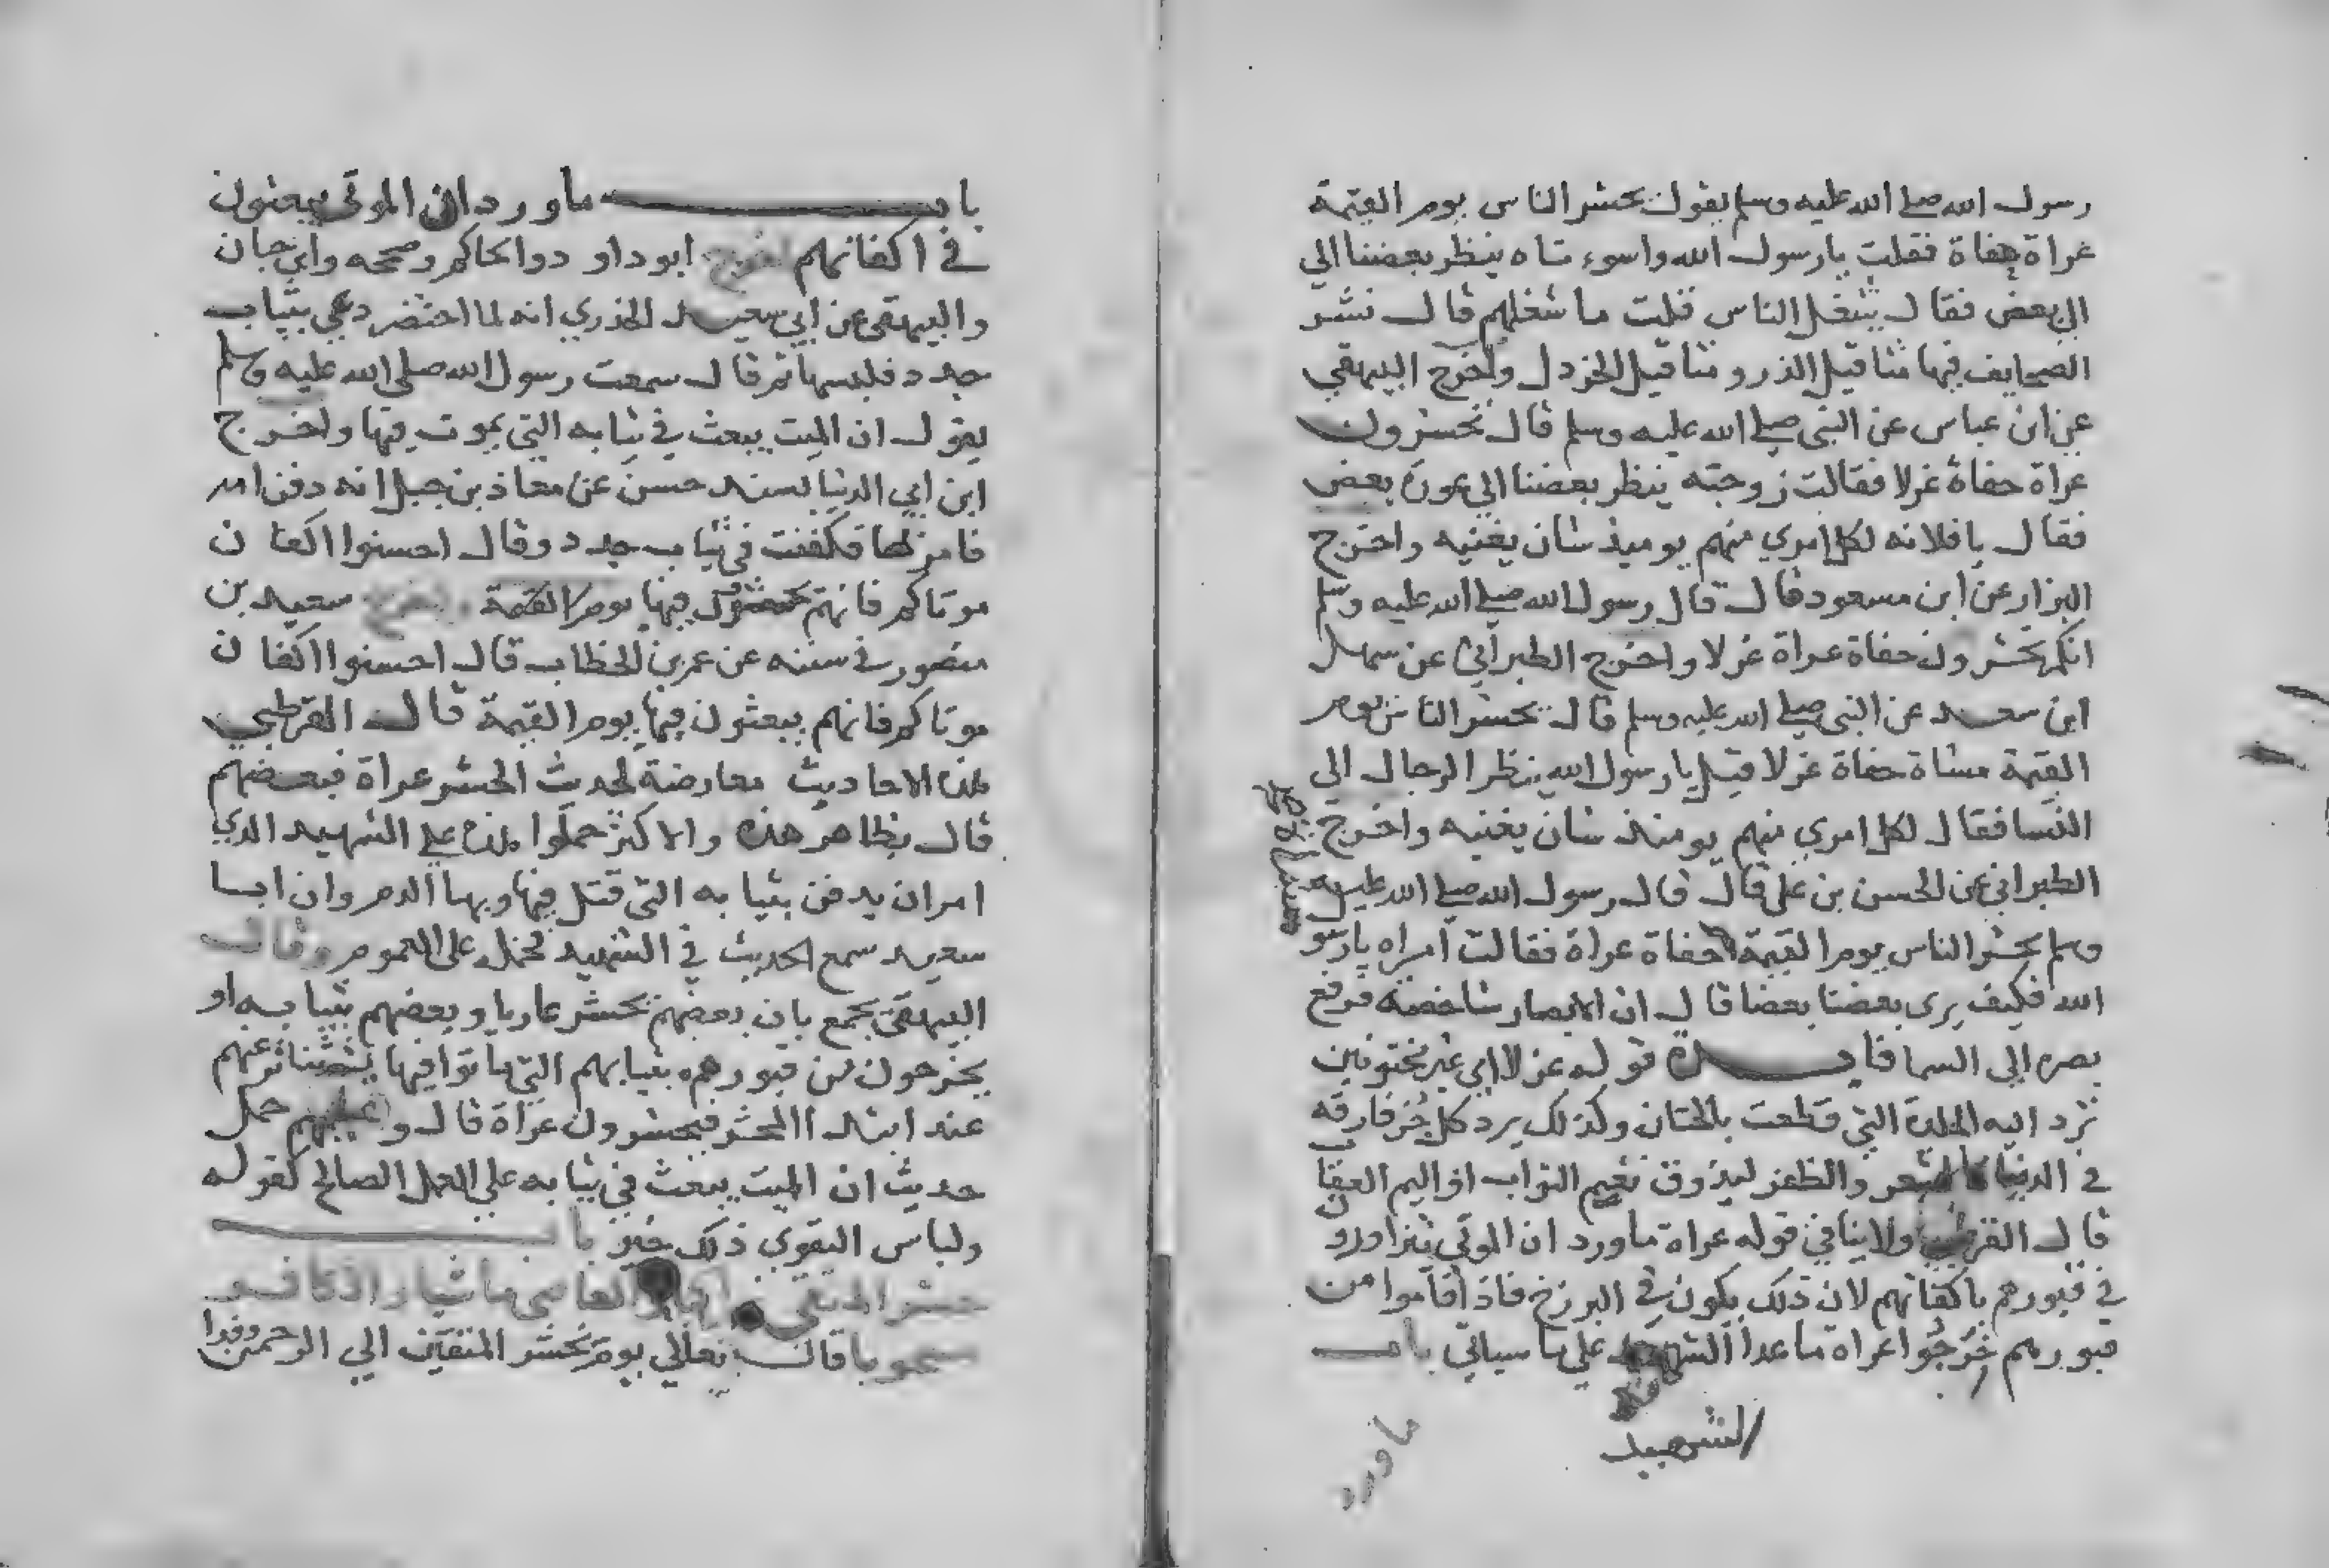 رسول الله صلى الله عليه وسلم يقول يحشر الناس يوم القيمة
عراة حفاة فقلت يارسول الله واسوءتاه ينظر بعضنا الي
الي بعض فقال يشغل الناس قلت ما شغلهم قال نشر
الصحايف فيها مثاقيل الذر ومثاقيل الخردل واخرج البيهقي
عن ابن عباس عن النبي صلي الله عليه وسلم قال تحشرون
عراة حفاة غرلا فقالت زوجته ينظر بعضنا الي عورة بعض
فقال يا فلانه لكل امري منهم يوميذ شان يغنيه واخرج
البزار عن ابن مسعود قال قال رسول الله صلي الله عليه وسلم
انكم تحشرون حفاة عراة غرلا واخرج الطبراني عن سهل
ابن سعد عن النبي صلي الله عليه وسلم قال يحشر الناس يوم
القيمة مشاة حفاة غرلا قيل يا رسول الله ينظر الرجال الي
النسا فقال لكل امري منهم يومئذ شان يغنيه واخرج
الطبراني عن الحسن بن علي قال قال رسول الله صلي الله عليه
وسلم يحشر الناس يوم القيمة حفاة عراة فقالت امراه يارسو
الله فكيف يرى بعضنا بعضا قال ان الابصار شاخصة فرفع
بصره الي السما فايدة قوله غرلا اي غير مختونين
ترد اليه الجلدة التي قطعت بالختان وكذلك يرد كل جز فارقه
في الدنيا كالشعر والظفر ليذوق نعيم الثواب او اليم العقاب
قال القرطبي ولا ينافي قوله عراة ما ورد ان الموتي يتزاورون
في قبورهم باكفانهم لان ذلك يكون في البرزخ فاذا قاموا من
قبورهم خرجوا عراه ما عدا الشهيد علي ما سياتي باب
الشهيد
ماورد
باب ماورد ان الموتى يبعثون
في اكفانهم اخرج ابوداود والحاكم وصححه وابن حبان
والبيهقي عن ابي سعيد الخدري انه لما احتضر دعي بثياب
جدد فلبسها ثم قال سمعت رسول الله صلى الله عليه وسلم
يقول ان الميت يبعث في ثيابه التي يموت فيها واخرج
ابن ابي الدنيا بسند حسن عن معاذ بن جبل انه دفن امه
فامر لها فكفنت في ثياب جدد وقال احسنوا اكفان
موتاكم فانهم يحشرون فيها يوم القيمة واخرج سعيد بن
منصور في سننه عن عمر بن الخطاب قال احسنوا اكفان
موتاكم فانهم يبعثون فيها يوم القيمة قال القرطبي
هذه الاحاديث معارضة لحديث الحشر عراة فبعضهم
قال بظاهر هذه والاكثر حملوا هذه علي الشهيد الذي
امر ان يدفن بثيابه التي قتل فيها وبها الدم وان ابا
سعيد سمع الحديث في الشهيد فحمله على العموم وقال
البيهقي يجمع بان بعضهم يحشر عاريا وبعضهم بثيابه او
يخرجون من قبورهم بثيابهم التي ماتوا فيها ثم تتناثر عنهم
عند ابتدا المحشر فيحشرون عراة قال وبعضهم حمل
حديث ان الميت يبعث في ثيابه علي العمل الصالح كقوله
ولباس التقوي ذلك خير باب
حشر المتقي والعاصي ماشيا والكافر
مسحوبا قال تعالي يوم نحشر المتقين الي الرحمن وفدا